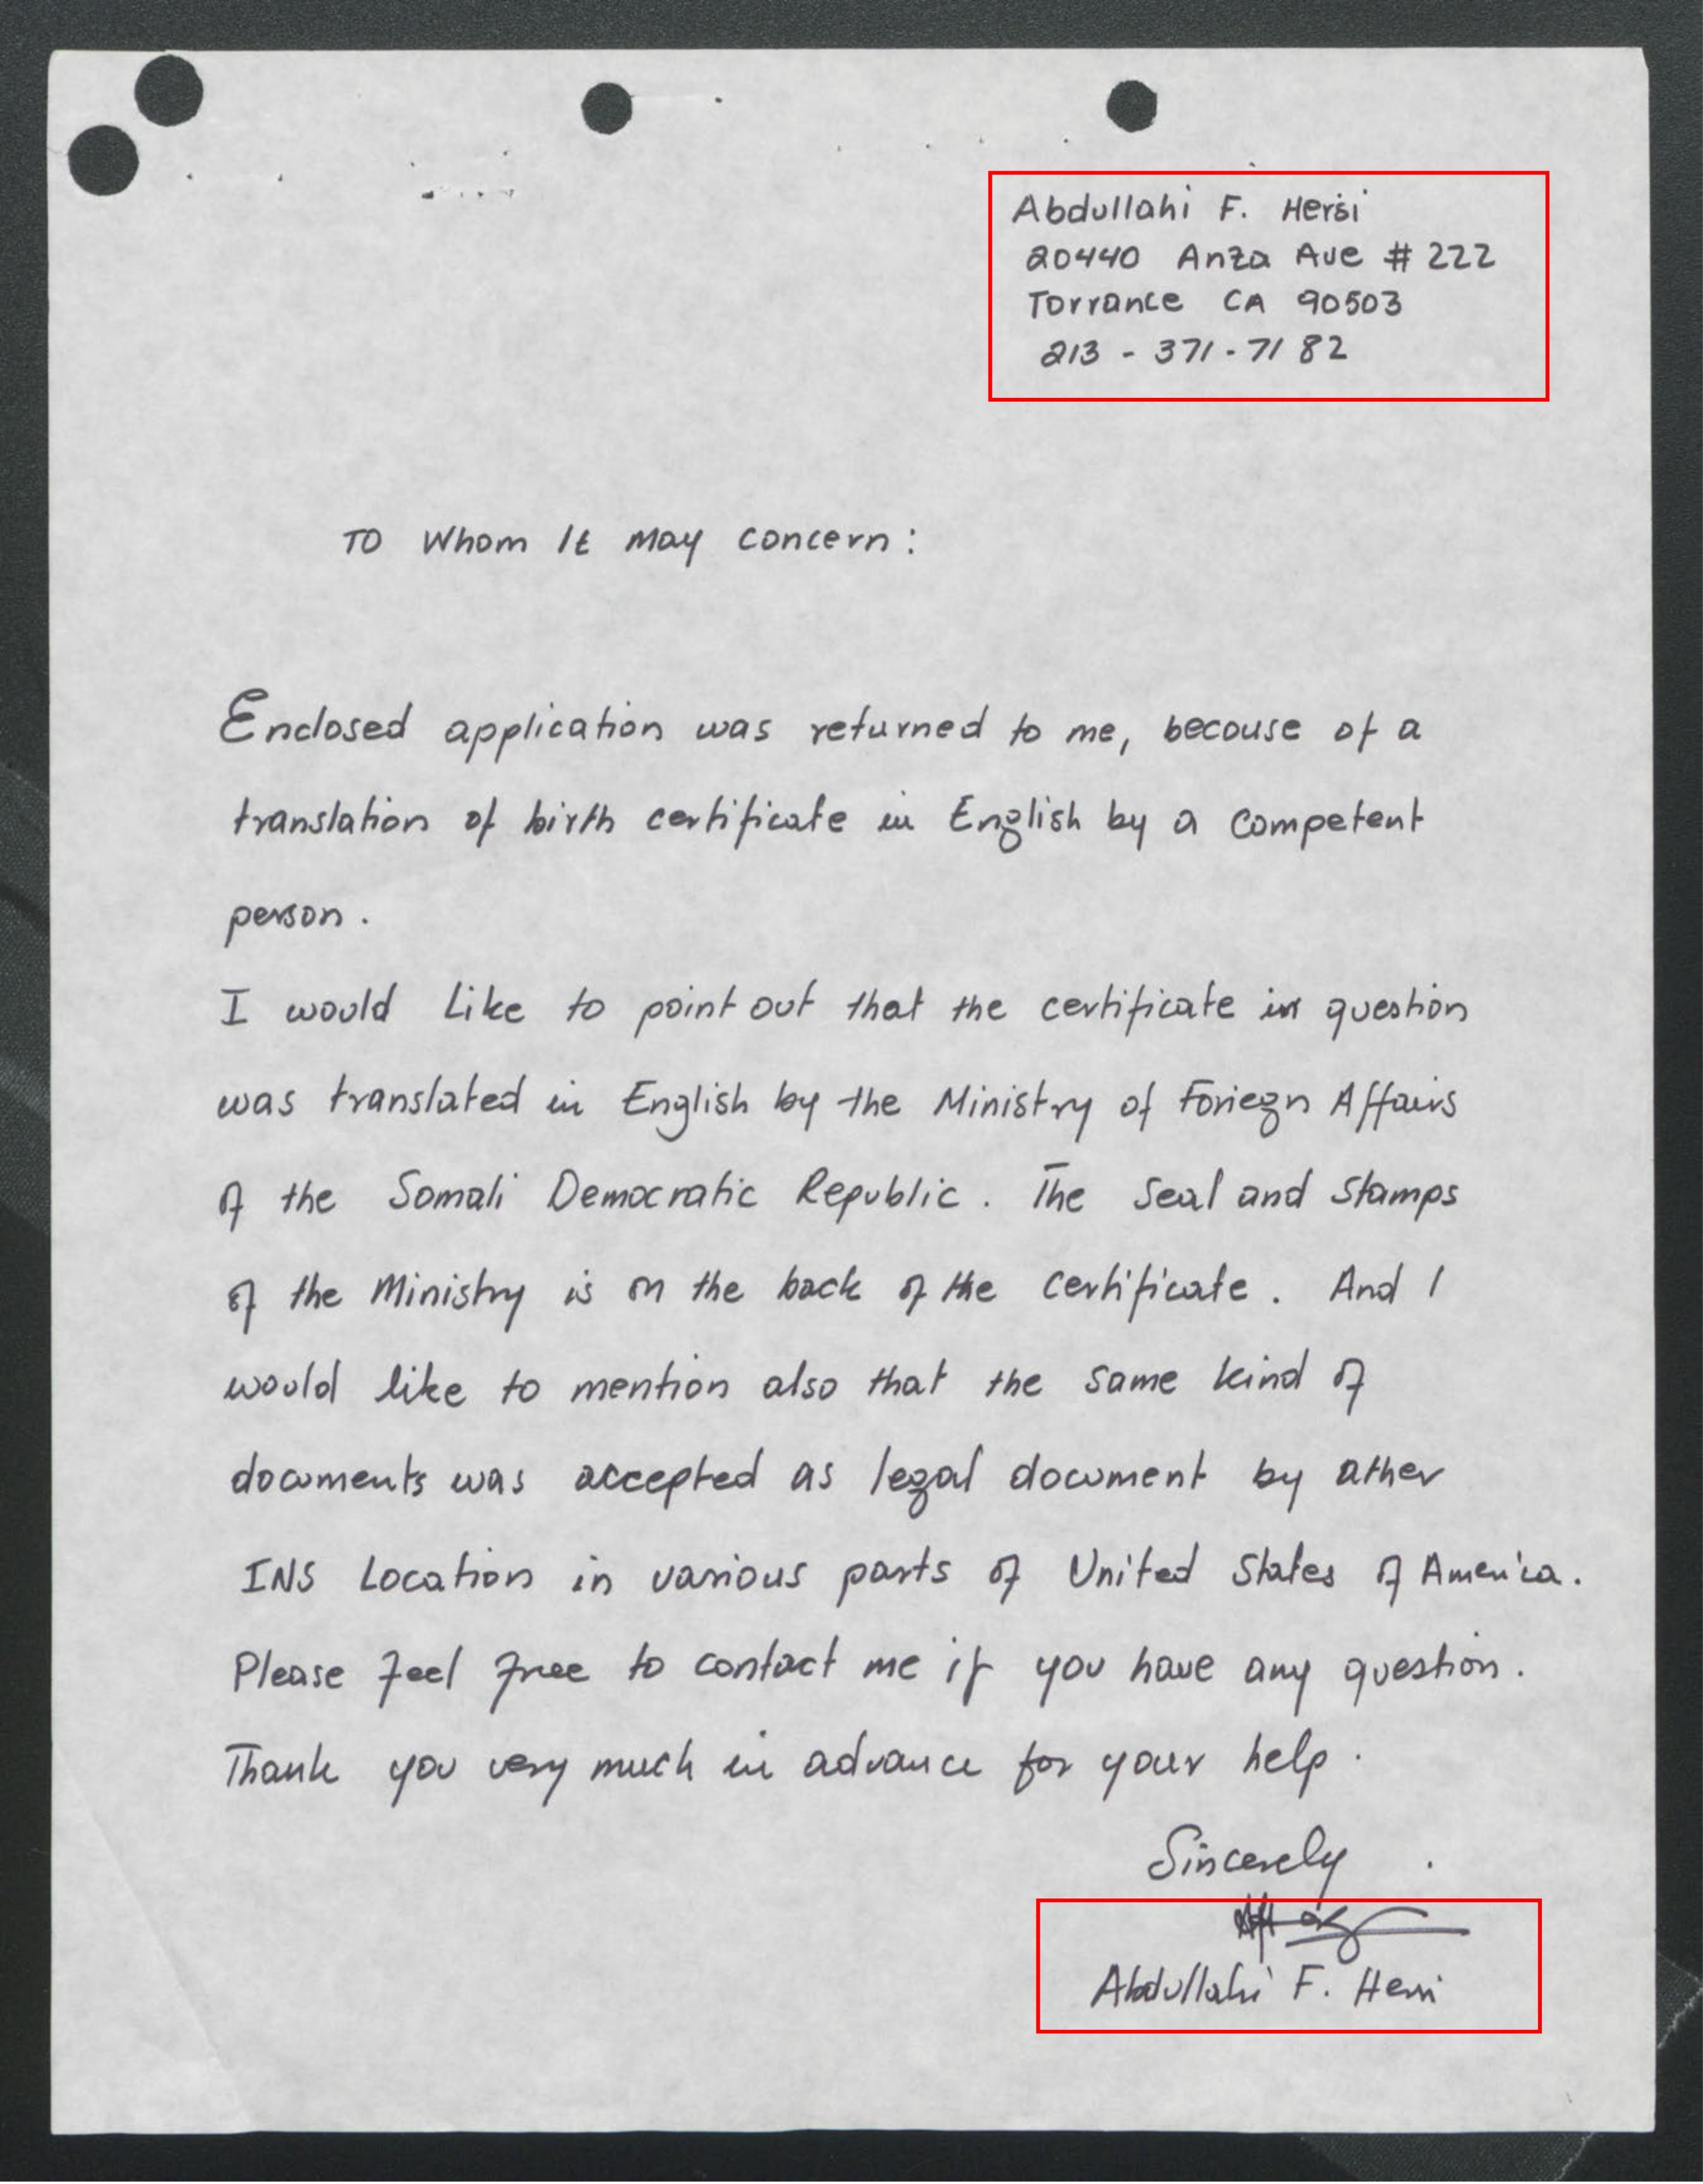 Abdullahi F. Hersi
20440 Anza Ave # 222
Torrance CA 90503
213 - 371 - 7182
TO Whom It May Concern:
Enclosed application was returned to me, becouse of a
translation of birth certificate in English by a competent
person.
I would Like to point out that the certificate in question
was translated in English by the Ministry of Foriegn Affairs
of the Somali Democratic Republic. The Seal and Stamps
of the Ministry is on the back of the certificate. And I
would like to mention also that the same kind of
documents was accepted as legal document by ather
INS Location in various parts of United States of America.
Please feel free to contact me if you have any question.
Thank you very much in advance for your help.
Sincerely
Abdullahi F. Hersi